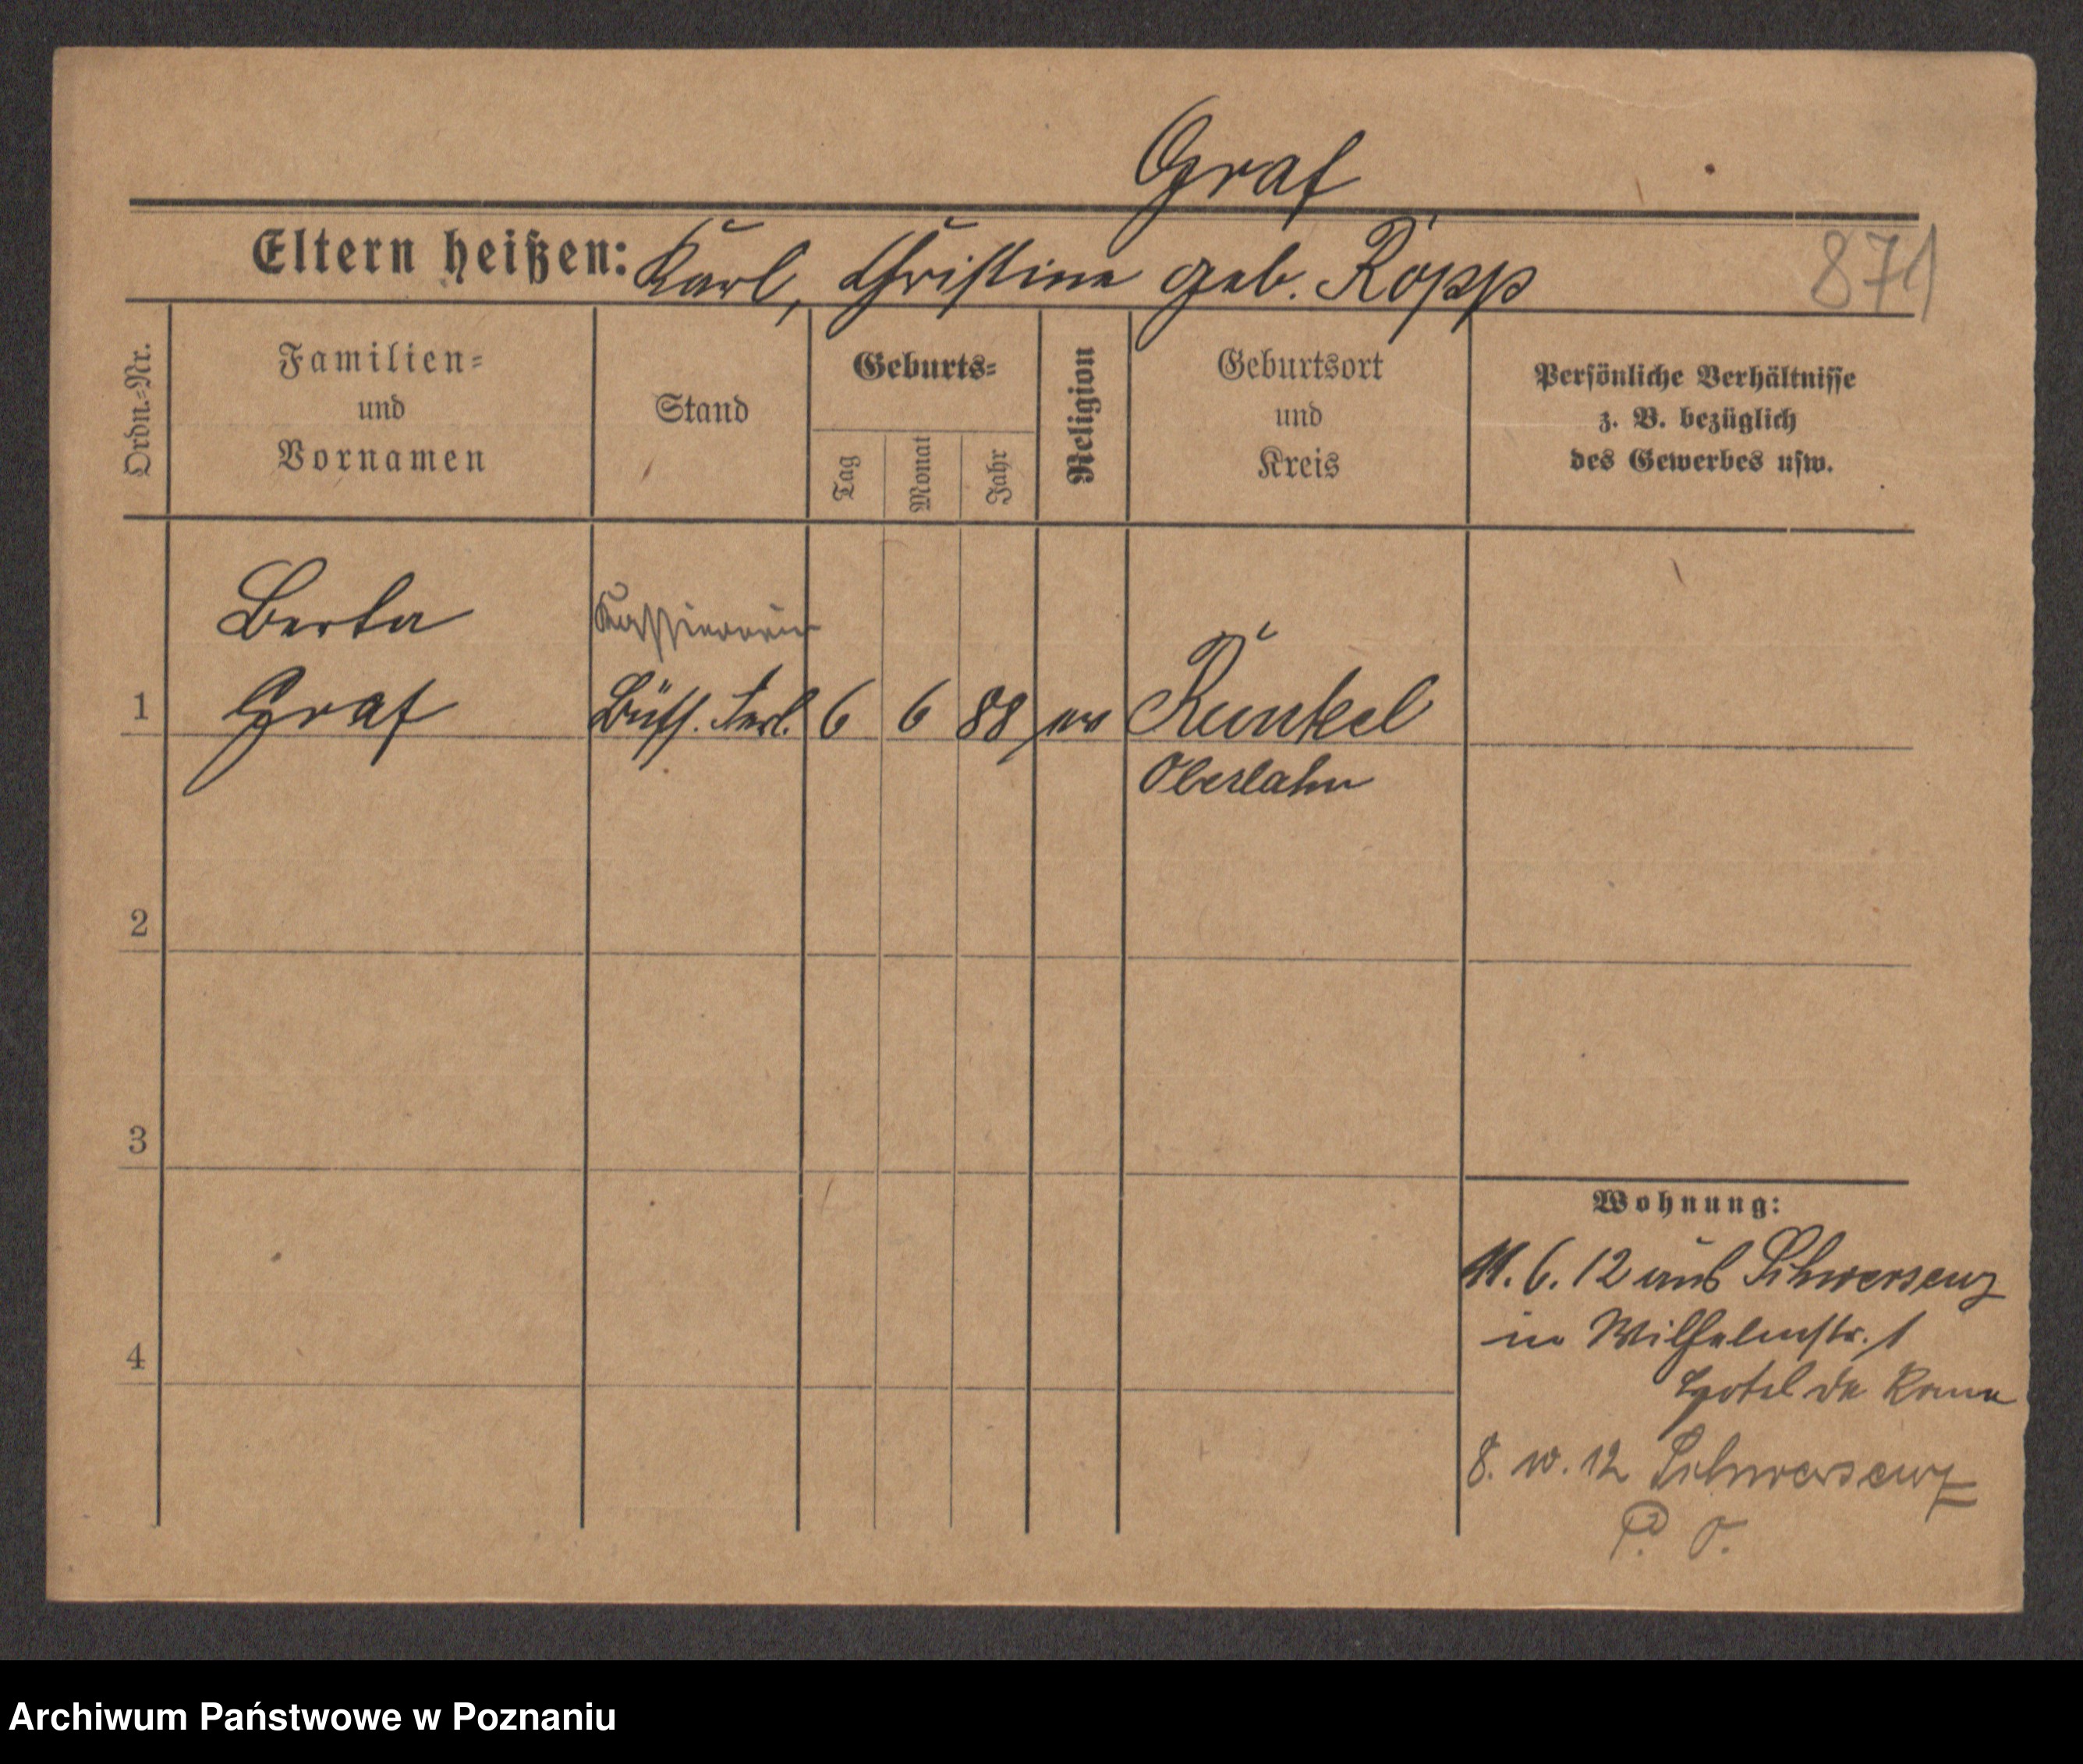 Graf
Eltern heißen: Karl, Christine geb. Röpp
871
Ordn.-Nr.
Familien-
und
Vornamen
Stand
Geburts-
Tag
Monat
Jahr
Religion
Geburtsort
und
Kreis
Persönliche Verhältnisse
z. B. bezüglich
des Gewerbes usw.
Berta
Kassiererin
1 Graf Büff. Frl. 6 6 88 ev Runkel
Oberlahn
2
3
Wohnung:
11. 6. 12 aus Schwersenz
in Wilhelmstr. 1
Hotel de Rome
4
8. 10. 12 Schwersenz
P. O.
Archiwum Państwowe w Poznaniu